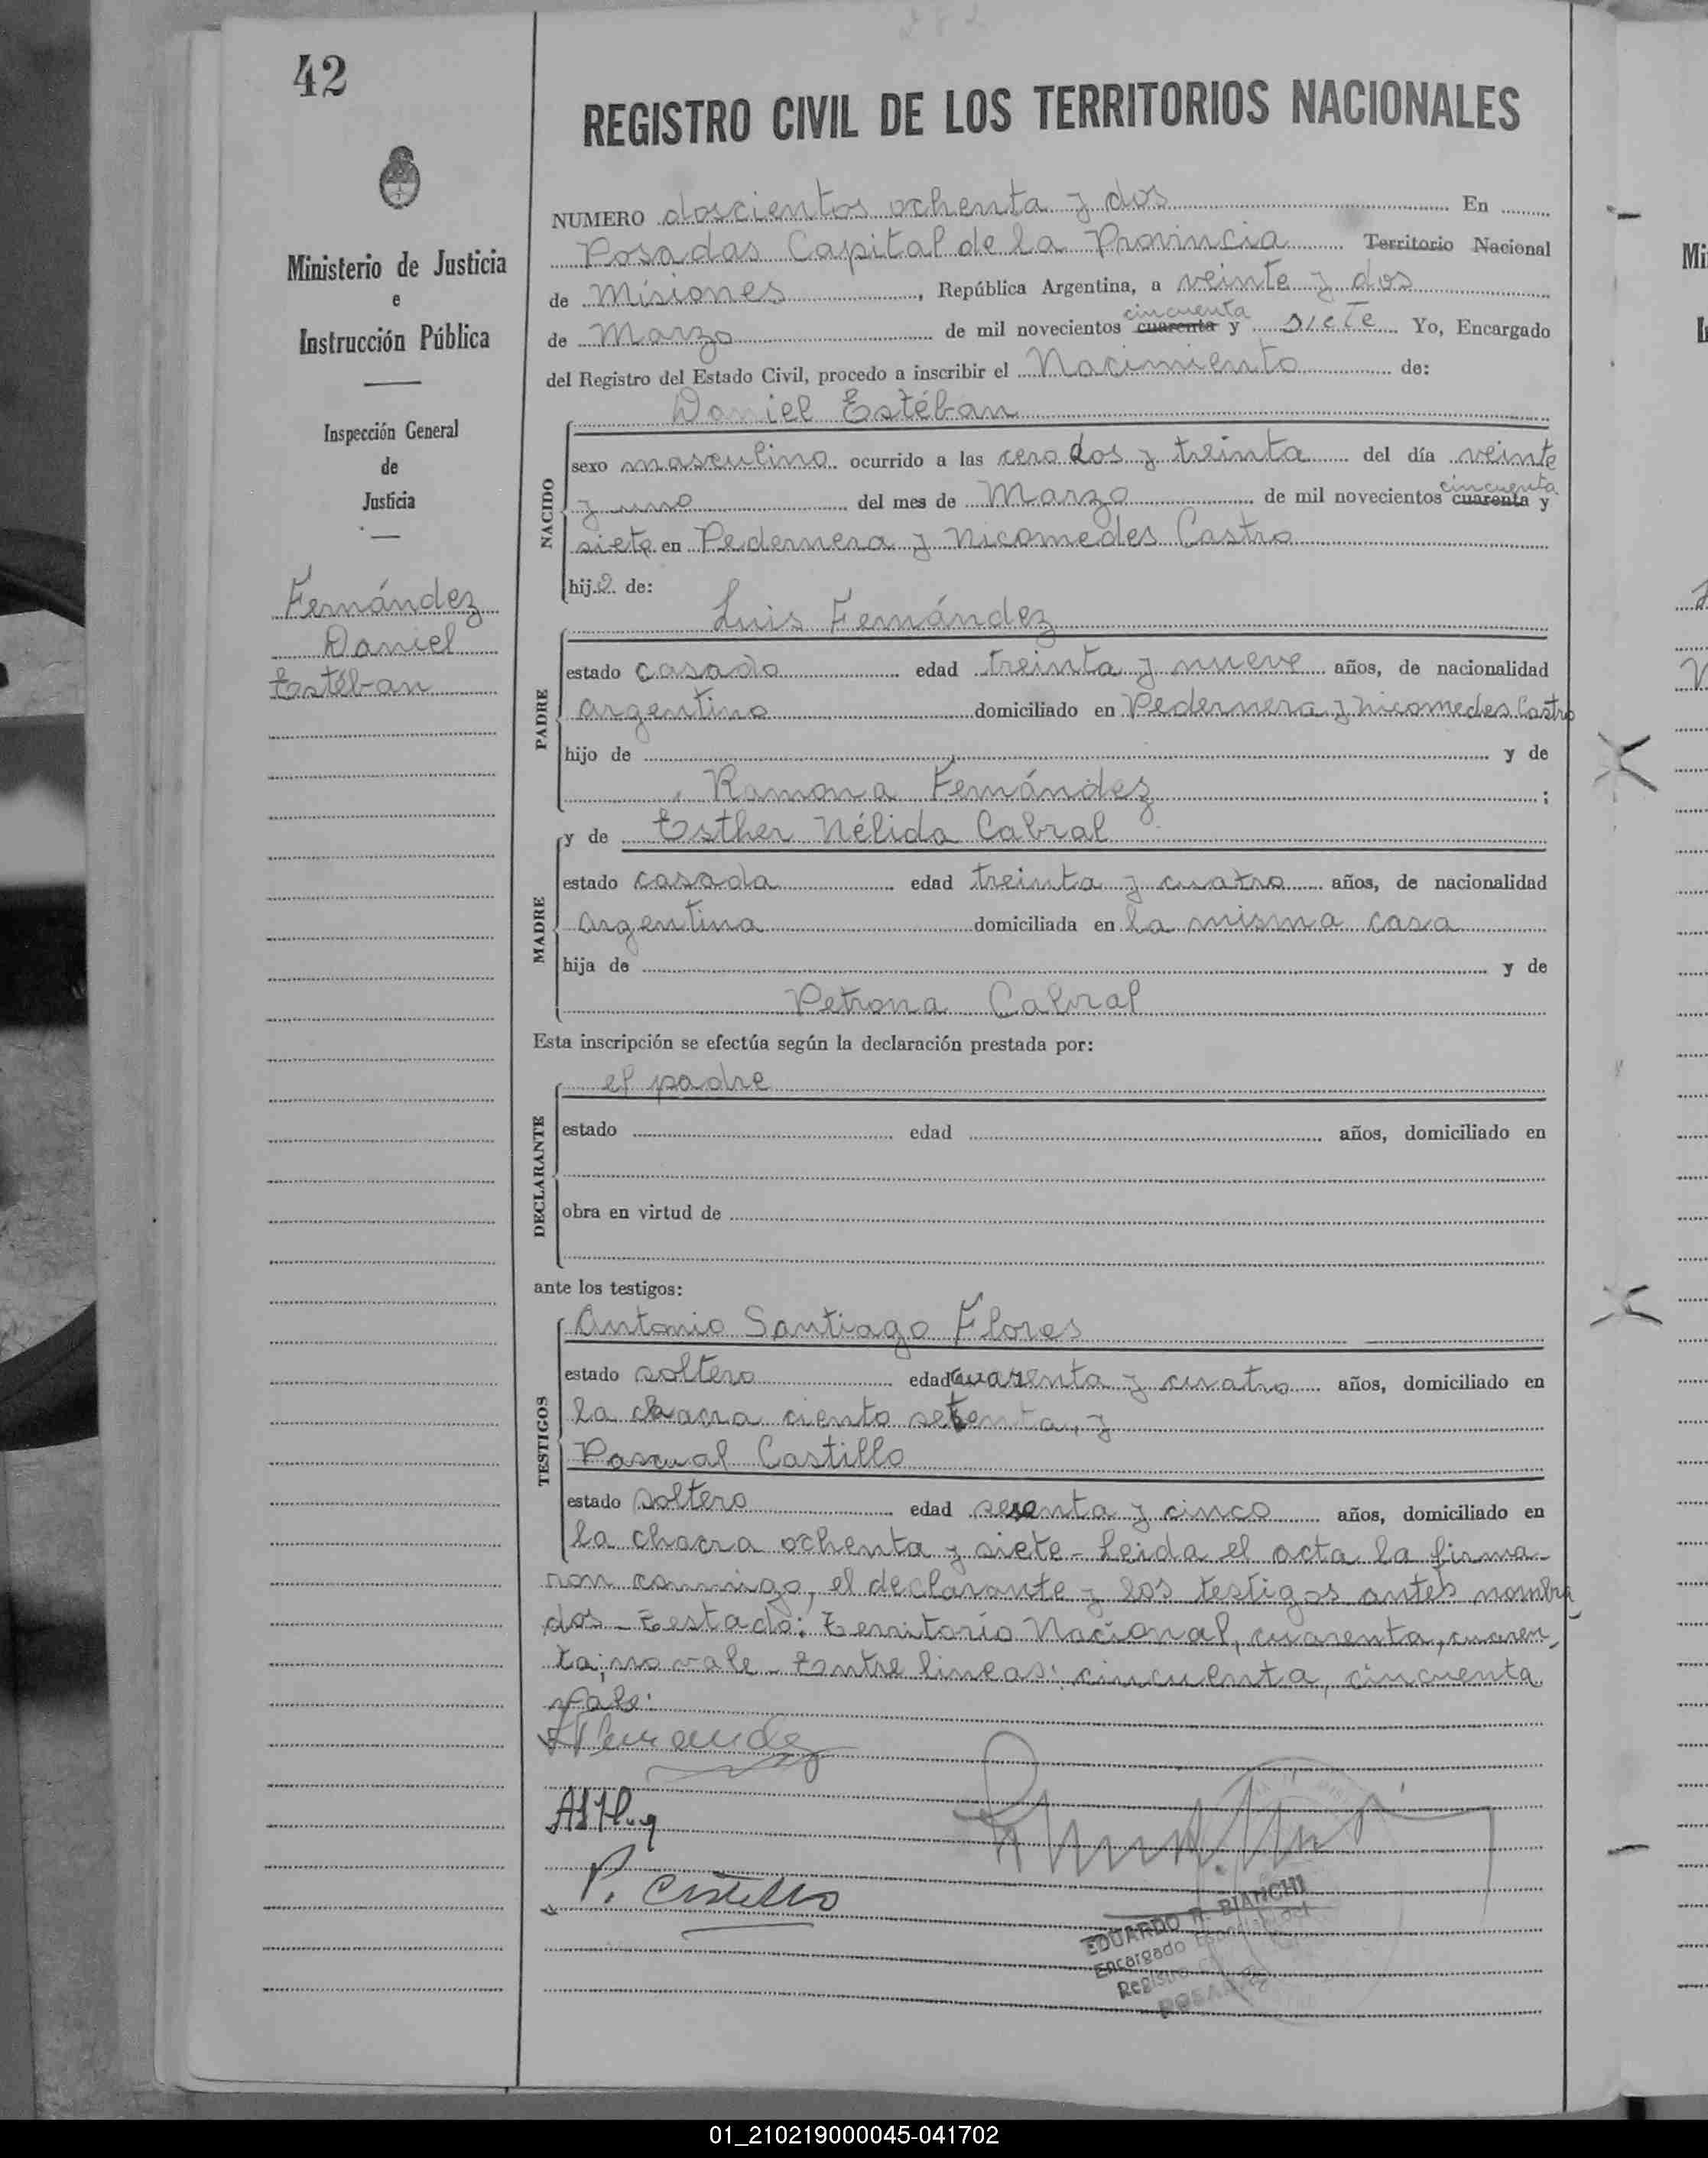 42
REGISTRO CIVIL DE LOS TERRITORIOS NACIONALES
Ministerio de Justicia
e
Instrucción Pública
Inspección General
de
Justicia
Fernández
Daniel
Estéban
NUMERO doscientos ochenta y dos En
Posadas Capital de la Provincia Territorio Nacional
de Misiones, República Argentina, a veinte y dos
cincuenta
de Marzo de mil novecientos cuarenta y siete Yo, Encargado
del Registro del Estado Civil, procedo a inscribir el Nacimiento de:
Daniel Estéban
NACIDO
sexo masculino ocurrido a las cero dos y treinta del día veinte
cincuenta
y uno del mes de Marzo de mil novecientos cuarenta y
siete en Pedernera y Nicomedes Castro
hijo de:
PADRE
Luis Fernández
estado casado edad treinta y nueve años, de nacionalidad
argentino domiciliado en Pedernera y Nicomedes Castro
hijo de y de
Ramona Fernández ;
MADRE
y de Esther Nélida Cabral
estado casada edad treinta y cuatro años, de nacionalidad
argentina domiciliada en la misma casa
hija de y de
Petrona Cabral
Esta inscripción se efectúa según la declaración prestada por:
DECLARANTE
el padre
estado edad años, domiciliado en
obra en virtud de
ante los testigos:
TESTIGOS
Antonio Santiago Flores
estado soltero edad cuarenta y cuatro años, domiciliado en
la chacra ciento setenta, y
Pascual Castillo
estado soltero edad sesenta y cinco años, domiciliado en
la chacra ochenta y siete - Leida el acta la firma-
ron conmigo, el declarante y los testigos antes nombra-
dos - Testado: Territorio Nacional, cuarenta, cuaren-
ta; no vale - Entre lineas: cincuenta, cincuenta
Vale:
P. Castillo
EDUARDO R. BIANCHI
Encargado
Registro
POSADAS
01_210219000045-041702